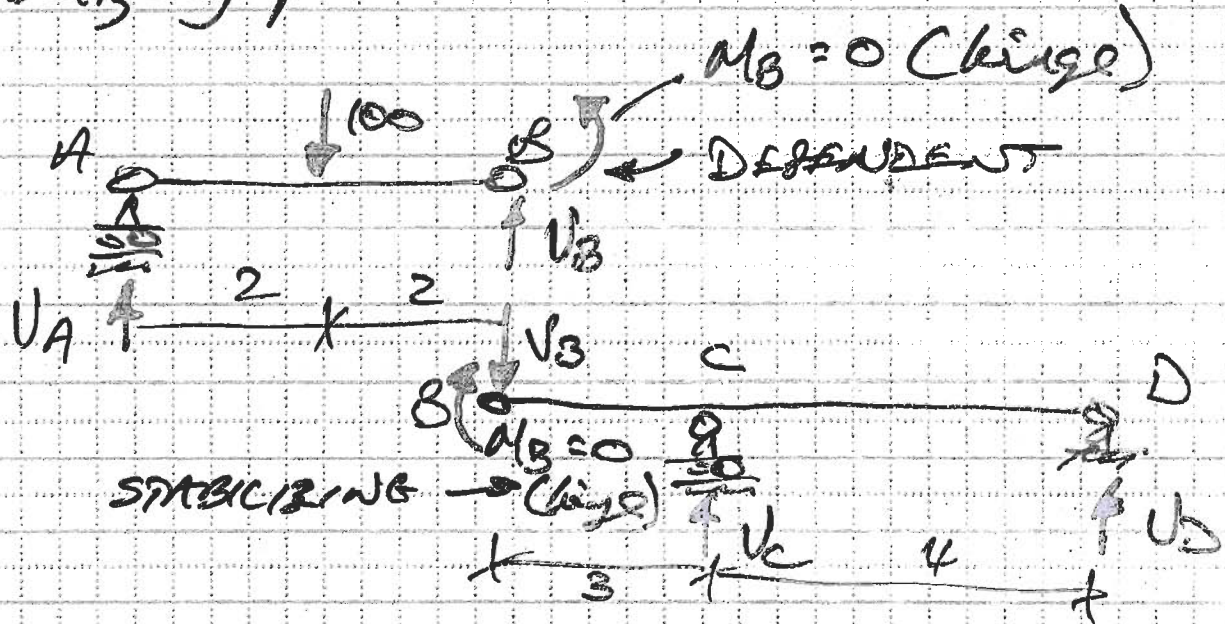 M_B = 0 (hinge)
100
A
B
DEPENDENT
V_B
2
2
V_A
V_B
C
D
B
M_B = 0
STABILIZING → (hinge)
V_C
V_D
3
4